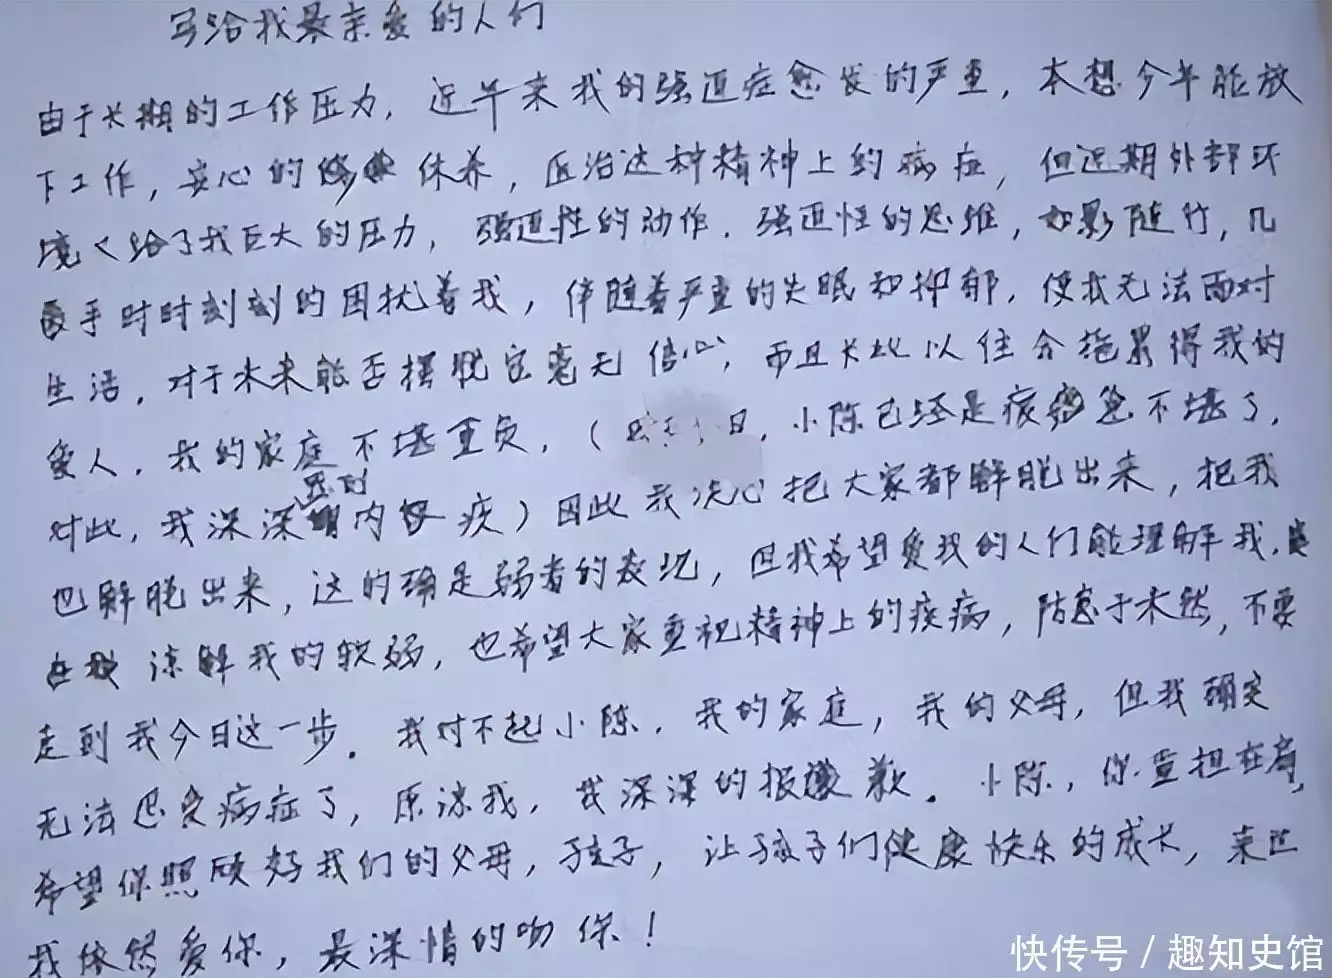 写给我最亲爱的人们
由于长期的工作压力，近年来我的强迫症愈发的严重，本想今年能放
下工作，安心的休养，医治这种精神上的病症，但近期外部环
境又给了我巨大的压力，强迫性的动作，强迫性的思维，如影随行，几
乎时时刻刻的困扰着我，伴随着严重的失眠和抑郁，使我无法面对
生活，对于未来能否摆脱它毫无信心，而且长此以往会拖累得我的
爱人，我的家庭不堪重负，（日，小陈已经是疲惫不堪了，
对此，我深深感到内疚）因此我决心把大家都解脱出来，把我
也解脱出来，这的确是弱者的表现，但我希望爱我的人们能理解我，
谅解我的软弱，也希望大家重视精神上的疾病，防患于未然，不要
走到我今日这一步。我对不起小陈，我的家庭，我的父母，但我确实
无法忍受病症了，原谅我，我深深的报歉。小陈，你重担在肩，
希望你照顾好我们的父母，孩子，让孩子们健康快乐的成长，来世
我依然爱你，最深情的吻你！
快传号／趣知史馆